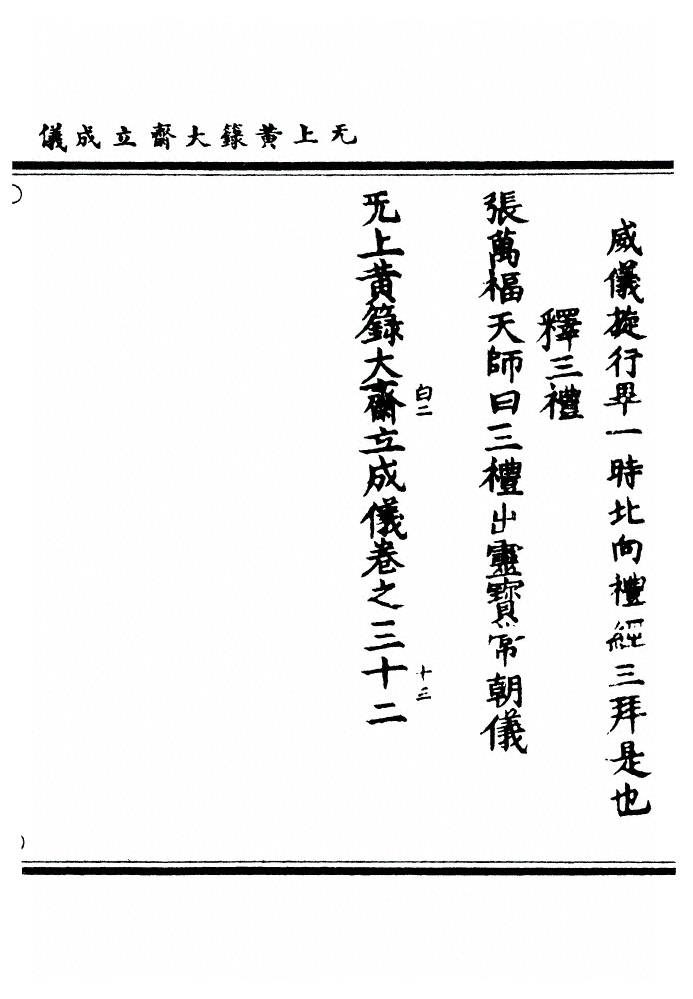 无上黄籙大齋立成儀
威儀旋行畢一時北向禮經三拜是也
釋三禮
張萬福天師曰三禮出靈寶常朝儀
无上黄籙大齋立成儀卷之三十二
白二
十三